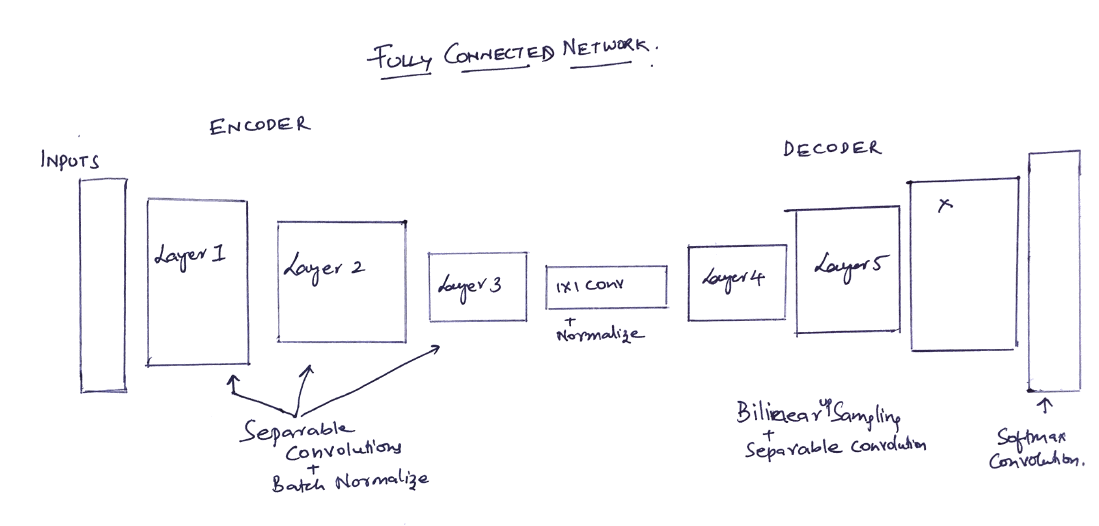 FULLY CONNECTED NETWORK.
ENCODER
DECODER
INPUTS
Layer 1
Layer 2
Layer 3
1x1 conv
+
Normalize
Layer 4
Layer 5
x
Separable
Convolutions
+
Batch Normalize
Bilinear up Sampling
+
Separable convolution
Softmax
Convolution.